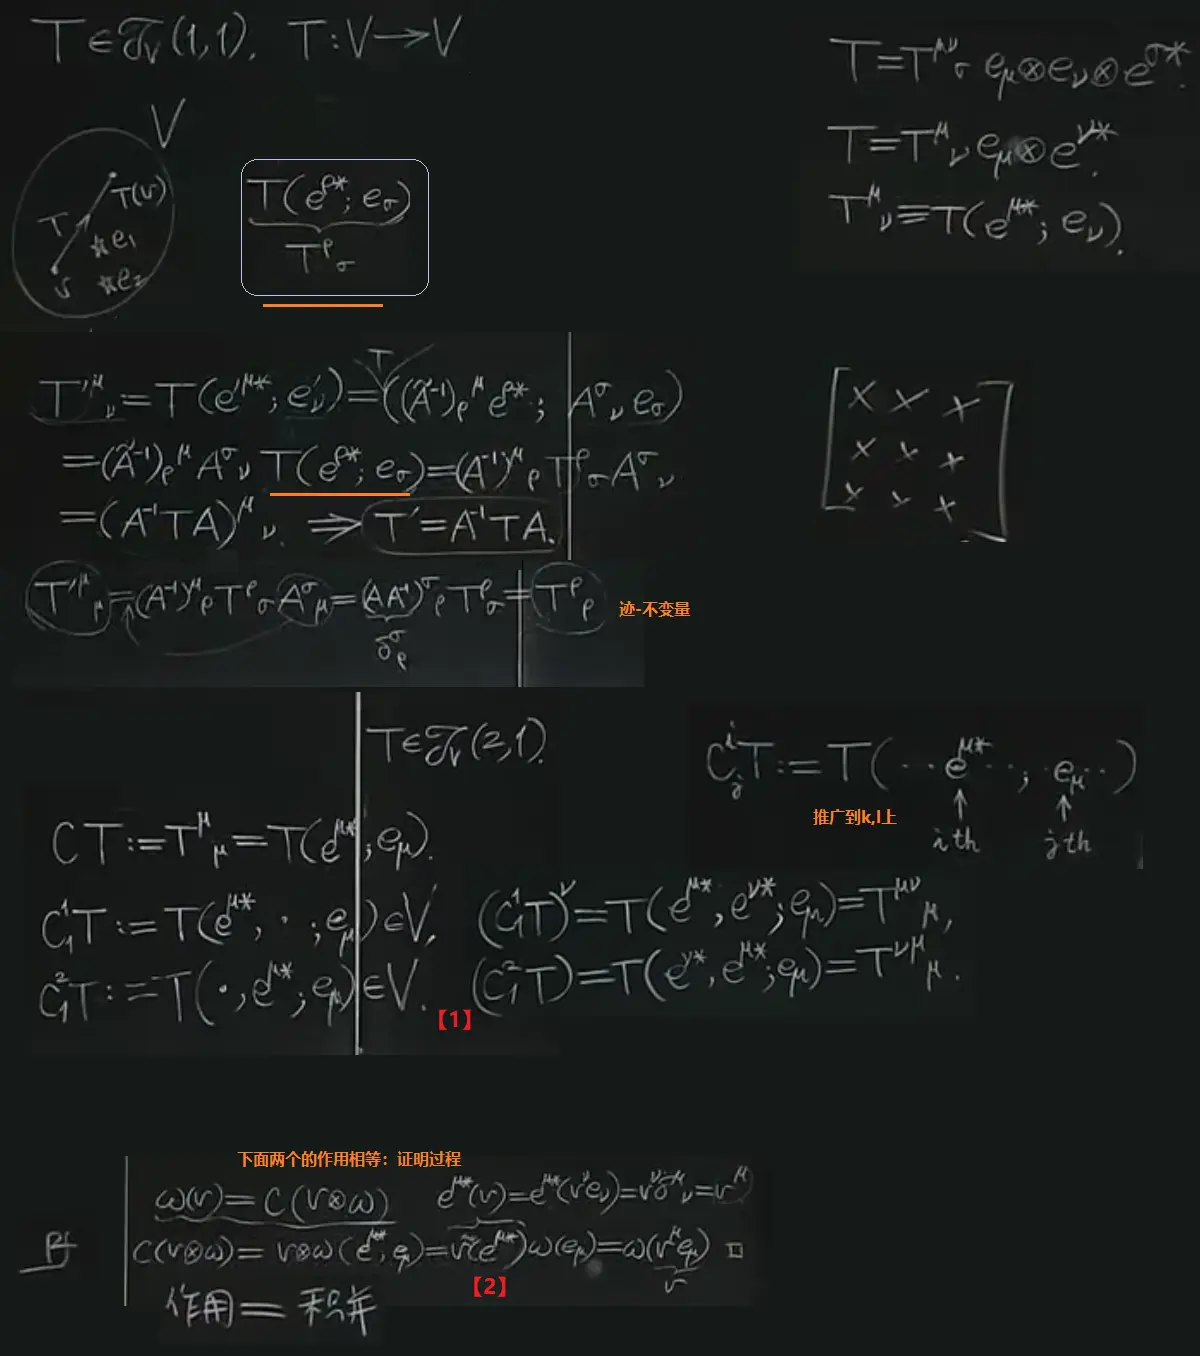 T∈𝒯_V(1,1). T:V→V
T=T^{μν}_σ e_μ⊗e_ν⊗e^{σ*}.
V
T=T^μ_ν e_μ⊗e^{ν*}.
T(e^{ρ*}; e_σ)
T^ρ_σ
T^μ_ν≡T(e^{μ*}; e_ν).
T(v)
T
☆e₁
v ☆e₂
T
T'^μ_ν=T(e'^{μ*}; e'_ν)=((Ã^{-1})_ρ^μ e^{ρ*}; A^σ_ν e_σ)
=(Ã^{-1})_ρ^μ A^σ_ν T(e^{ρ*}; e_σ)=(A^{-1})^μ_ρ T^ρ_σ A^σ_ν
=(A^{-1}TA)^μ_ν. ⇒ T'=A^{-1}TA.
× × ×
× × ×
× × ×
T'^μ_μ=(A^{-1})^μ_ρ T^ρ_σ A^σ_μ=(AA^{-1})^σ_ρ T^ρ_σ=T^ρ_ρ 迹-不变量
δ^σ_ρ
T∈𝒯_V(2,1).
C^i_j T:=T(··e^{μ*}··, ; e_μ··)
推广到k,l上
ith jth
CT:=T^μ_μ=T(e^{μ*}; e_μ).
C^1_1T:=T(e^{μ*}, ·; e_μ)∈V, (C^1_1T)^ν=T(e^{μ*}, e^{ν*}; e_μ)=T^{μν}_μ,
C^2_1T:=T(·, e^{μ*}; e_μ)∈V. (C^2_1T)=T(e^{ν*}, e^{μ*}; e_μ)=T^{νμ}_μ.
【1】
下面两个的作用相等：证明过程
ω(v)=C(v⊗ω) e^{μ*}(v)=e^{μ*}(v^ν e_ν)=v^ν δ^μ_ν=v^μ
C(v⊗ω)=v⊗ω(e^{μ*}; e_μ)=v(e^{μ*})ω(e_μ)=ω(v^μ e_μ) □
v
【2】
作用=积并